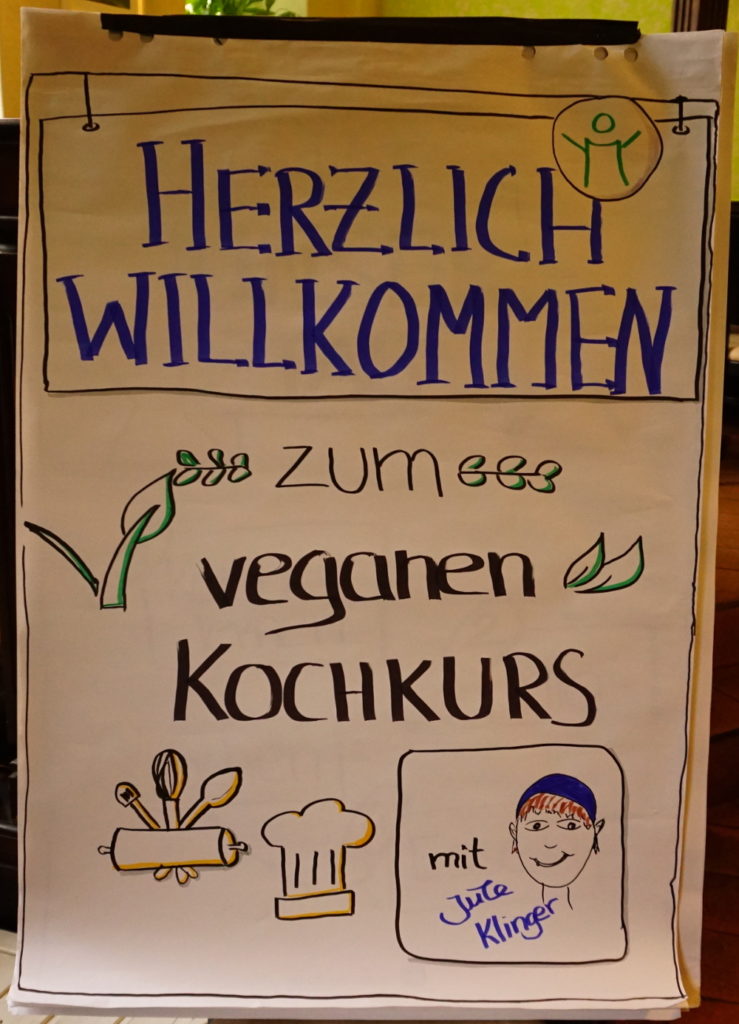 HERZLICH
WILLKOMMEN
zum
veganen
KOCHKURS
mit
Jule
Klinger